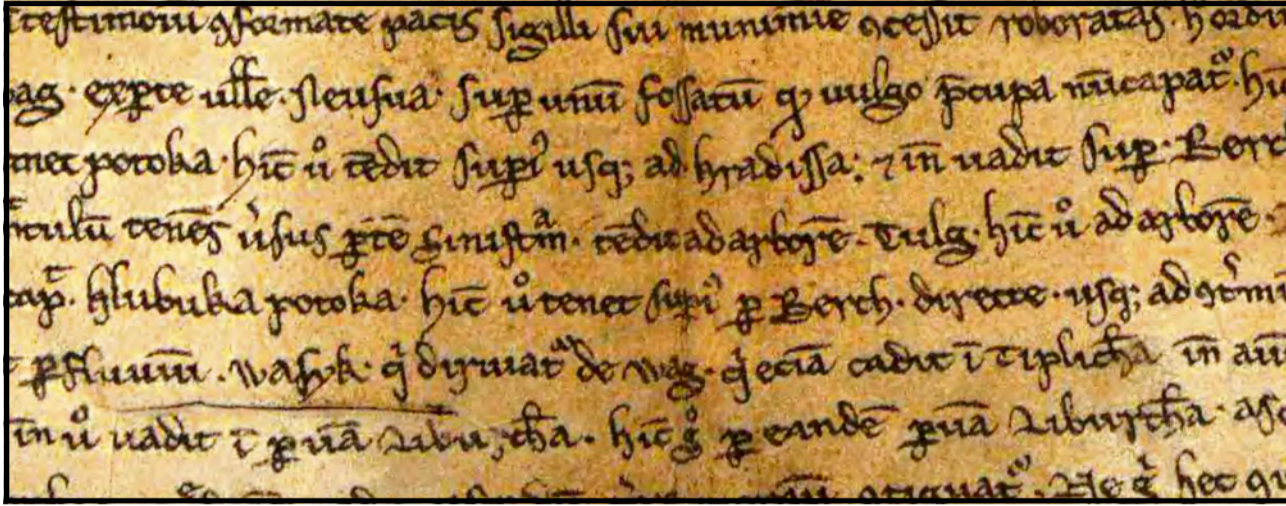 testimoiu ꝯformate pacis sigilli sui munimīe ꝯcessit roboratas. h ordi
ag. ex ꝑte ull̄e. Neusua. suꝑ unū fossatū qͦ uulgo p̄cupa nūcapatᷣ. hi
tenet potoka. hīc uͦ tēdit suꝑi usqꝫ ad hradissa; ⁊ īn uadit suꝑ. Berc
tulū tenēs ūsus ꝑtē sinistᷓm. tēdit ad arborē. Tulg. hīc uͦ ad arborē.
hlubuka potoka. hīc uͦ tenet suꝑi ꝑ Berch. directe. usqꝫ ad ꝯtͥmi
ꝑ fluuiū. wasyk. qͥ diriuatᷣ de wag. qͥ eciā cadit ī Tiplich̄a īn
īn uͦ uadit ī ꝑuā Libu,ch̄a. hīc gͦ ꝑ eandē ꝑuā Liburch̄a. as
ꝯtiguatᷣ. hec